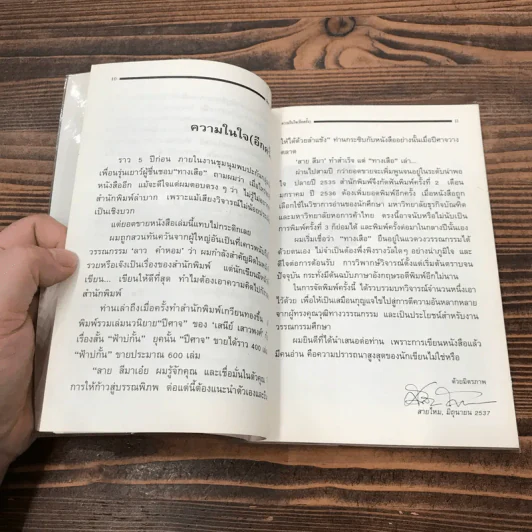 10
ความในใจ(อีกค
ราว 5 ปีก่อน ภายในงานชุมนุมพบปะกัน
เพื่อนรุ่นเยาว์ผู้ชื่นชอบ"ทางเสือ" ถามผมว่า เมื่อไร
หนังสืออีก แม้จะดีใจแต่ผมตอบตรง ๆ ว่า ไม่รู้
สำนักพิมพ์ลำบาก เพราะแม้เสียงวิจารณ์ไม่น้อย
เป็นเชิงบวก
แต่ยอดขายหนังสือเล่มนี้แทบไม่กระดิกเลย
ผมถูกสวนทันควันจากผู้ใหญ่อันเป็นที่เคารพ
วรรณกรรม 'ลาว คำหอม' ว่า ผมกำลังสำคัญผิด
รวยหรือเจ๊งเป็นเรื่องของสำนักพิมพ์ แต่นักเขียนมี
เขียน... เขียนให้ดีที่สุด ทำไมต้องเอาความคิดไป
สำนักพิมพ์
ท่านเล่าถึงเมื่อครั้งทำสำนักพิมพ์เกวียนทองขึ้น
พิมพ์รวมเล่มนวนิยาย "ปีศาจ" ของ 'เสนีย์ เสาวพงศ์'
เรื่องสั้น "ฟ้าบ่กั้น" ยุคนั้น "ปีศาจ" ขายได้ราว 400 เล่ม
"ฟ้าบ่กั้น" ขายประมาณ 600 เล่ม
"สาย สีมาเอ๋ย ผมรู้จักคุณ และเชื่อมั่นในตัวคุณ
การให้ก้าวสู่บรรณพิภพ ต่อแต่นี้ต้องแนะนำตัวเองและ
11
ให้ได้ด้วยลำแข้ง" ท่านกระซิบกับหนังสืออย่างนั้นเมื่อปีศาจวาง
ตลาด
'สาย สีมา' ทำสำเร็จ แต่ "ทางเสือ" เล่า...
ผ่านไปสามปี กว่ายอดขายจะเพิ่มพูนจนอยู่ในระดับน่าพอ
ใจ ปลายปี 2535 สำนักพิมพ์จึงกัดฟันพิมพ์ครั้งที่ 2 เดือน
มกราคม ปี 2536 ต้องเพิ่มยอดพิมพ์อีกครั้ง เมื่อหนังสือถูก
เลือกใช้ในวิชาการอ่านของนักศึกษา มหาวิทยาลัยธุรกิจบัณฑิต
และมหาวิทยาลัยหอการค้าไทย ตรงนี้อาจนับหรือไม่นับเป็น
การพิมพ์ครั้งที่ 3 ก็ย่อมได้ และพิมพ์ครั้งต่อมาในกลางปีนั้นเอง
ผมเริ่มเชื่อว่า "ทางเสือ" ยืนอยู่ในแวดวงวรรณกรรมได้
ด้วยตนเอง ไม่จำเป็นต้องพึ่งพิงรางวัลใดๆ อย่างน่าภูมิใจ และ
ดีใจต่อการต้อนรับ การวิพากษ์วิจารณ์ตั้งแต่เริ่มต้นตราบจน
ปัจจุบัน กระทั่งมีต้นฉบับภาษาอังกฤษรอตีพิมพ์อีกไม่นาน
ในการจัดพิมพ์ครั้งนี้ ได้รวบรวมบทวิจารณ์จำนวนหนึ่งเอา
ไว้ด้วย เพื่อให้เป็นเสมือนกุญแจไขไปสู่การตีความอันหลากหลาย
จากผู้ทรงคุณวุฒิทางวรรณกรรม และเป็นประโยชน์สำหรับงาน
วรรณกรรมศึกษา
ผมยินดีที่ได้นำเสนอต่อท่าน เพราะการเขียนหนังสือแล้ว
มีคนอ่าน คือความปรารถนาสูงสุดของนักเขียนไม่ใช่หรือ
ด้วยมิตรภาพ
สายไหม, มิถุนายน 2537